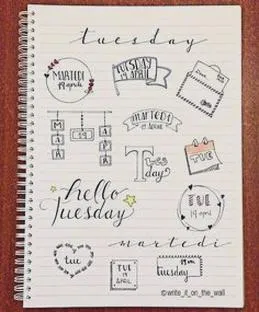 tuesday
MARTEDÌ
19 aprile
TUESDAY
19 APRIL
MARTEDÌ
19 APRILE
19
Tues
day
TUE
hello
Tuesday
TUE
19 april
martedì
tue
TUE
19
APRIL
tuesday
©write_it_on_the_wall